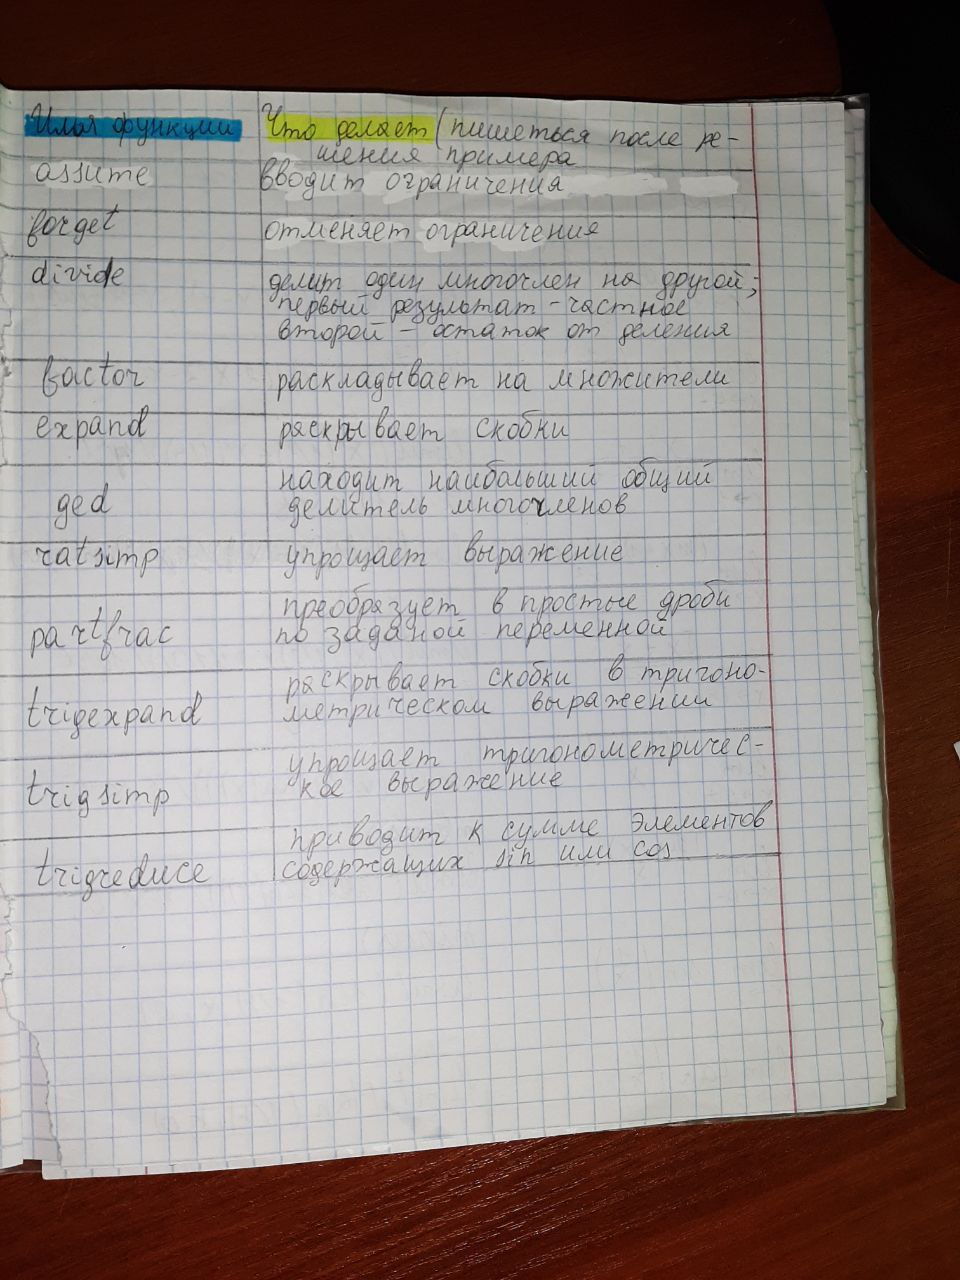 Имя функции Что делает (пишеться после ре-
шения примера
assume вводит ограничения
forget отменяет ограничения
divide делит один многочлен на другой;
первый результат - частное
второй - остаток от деления
factor раскладывает на множители
expand раскрывает скобки
находит наибольший общий
gcd делитель многочленов
ratsimp упрощает выражение
преобразует в простые дроби
partfrac по заданой переменной
раскрывает скобки в тригоно-
trigexpand метрическом выражении
упрощает тригонометричес-
trigsimp кое выражение
приводит к сумме элементов
trigreduce содержащих sin или cos